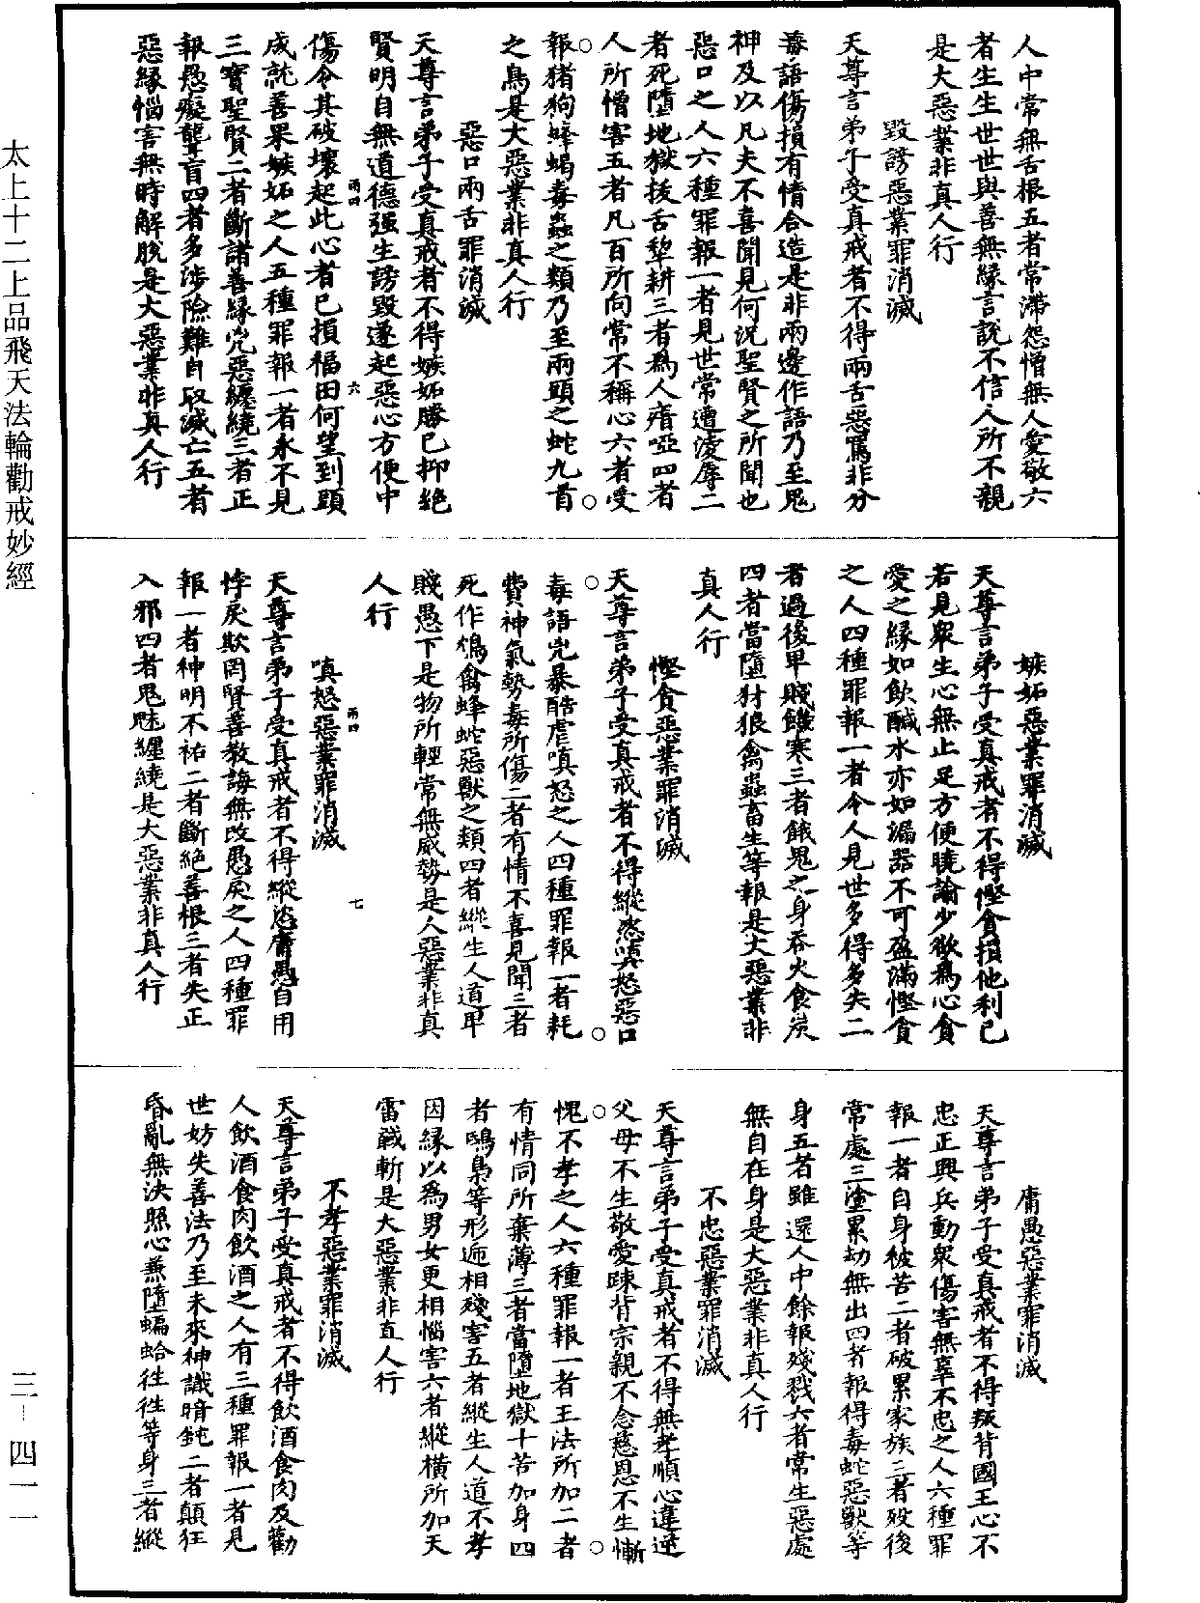 人中常無舌根五者常滯怨憎無人愛敬六
者生生世世與善無緣言說不信人所不親
是大惡業非真人行
毀謗惡業罪消滅
天尊言弟子受真戒者不得兩舌惡罵非分
毒語傷損有情合造是非兩邊作語乃至鬼
神及以凡夫不喜聞見何況聖賢之所聞也
惡口之人六種罪報一者見世常遭淩辱二
者死墮地獄拔舌犁耕三者為人瘖啞四者
人所憎害五者凡百所向常不稱心六者受
報猪狗蜂蝎毒蟲之類乃至兩頭之蛇九首
之鳥是大惡業非真人行
惡口兩舌罪消滅
天尊言弟子受真戒者不得嫉妬勝己抑絕
賢明自無道德强生謗毀遂起惡心方便中
傷令其破壞起此心者已損福田何望到頭
成就善果嫉妬之人五種罪報一者永不見
三寶聖賢二者斷諸善緣兇惡纏繞三者正
報愚癡聾盲四者多涉險難自取滅亡五者
惡緣惱害無時解脫是大惡業非真人行
嫉妬惡業罪消滅
天尊言弟子受真戒者不得慳貪損他利己
若見眾生心無止足方便曉諭少欲為心貪
愛之緣如飲鹹水亦如漏器不可盈滿慳貪
之人四種罪報一者令人見世多得多失二
者過後卑賤饑寒三者餓鬼之身吞火食炭
四者當墮犲狼禽蟲畜生等報是大惡業非
真人行
慳貪惡業罪消滅
天尊言弟子受真戒者不得縱恣嗔怒惡口
毒語兇暴酷虐嗔怒之人四種罪報一者耗
費神氣勢毒所傷二者有情不喜見聞三者
死作鴆禽蜂蛇惡獸之類四者縱生人道卑
賤愚下是物所輕常無威勢是人惡業非真
人行
嗔怒惡業罪消滅
天尊言弟子受真戒者不得縱恣庸愚自用
悖戾欺罔賢善教誨無改愚戾之人四種罪
報一者神明不祐二者斷絕善根三者失正
入邪四者鬼魅纏繞是大惡業非真人行
庸愚惡業罪消滅
天尊言弟子受真戒者不得叛背國王心不
忠正興兵動眾傷害無辜不忠之人六種罪
報一者自身被苦二者破累家族三者歿後
常處三塗累劫無出四者報得毒蛇惡獸等
身五者雖還人中餘報殘戮六者常生惡處
無自在身是大惡業非真人行
不忠惡業罪消滅
天尊言弟子受真戒者不得無孝順心違逆
父母不生敬愛踈背宗親不念慈恩不生慚
愧不孝之人六種罪報一者王法所加二者
有情同所棄薄三者當墮地獄十苦加身四
者鴟梟等形遞相殘害五者縱生人道不孝
因緣以為男女更相惱害六者縱橫所加天
雷誡斬是大惡業非真人行
不孝惡業罪消滅
天尊言弟子受真戒者不得飲酒食肉及勸
人飲酒食肉飲酒之人有三種罪報一者見
世妨失善法乃至未來神識暗鈍二者顛狂
昏亂無決照心兼墮蝙蛤狌狌等身三者縱
兩四 六
兩四 七
太上十二上品飛天法輪勸戒妙經
三—四一一